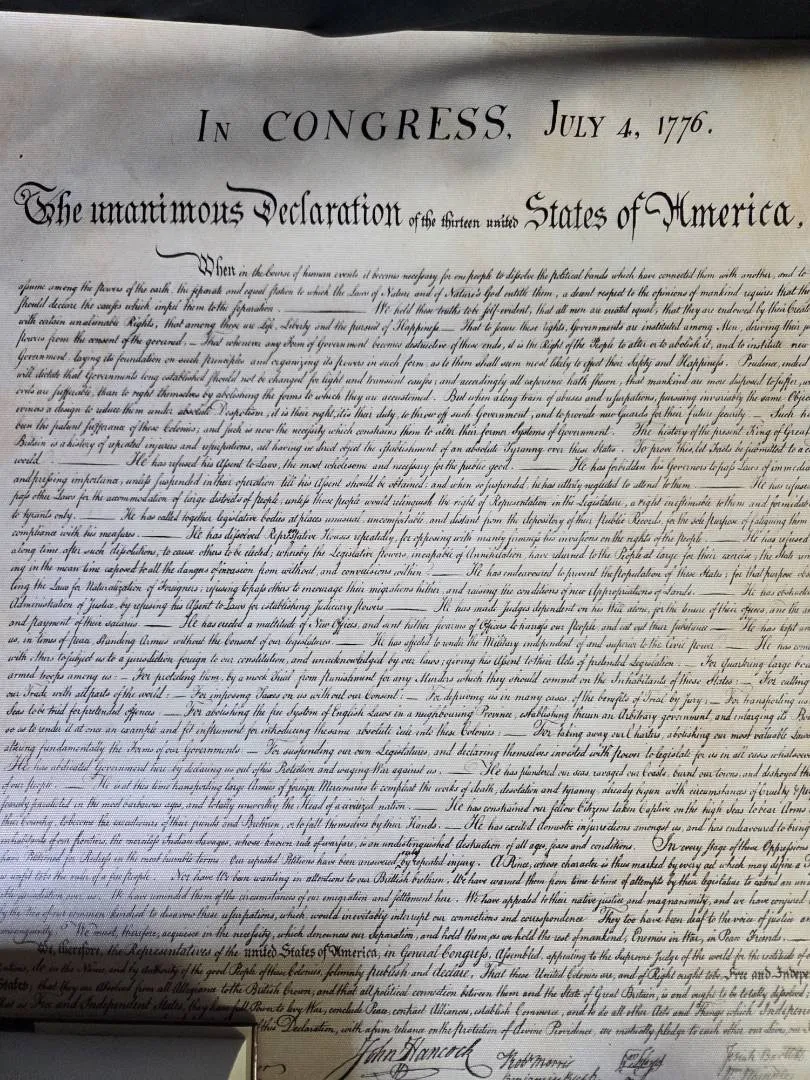 IN CONGRESS, JULY 4, 1776.
The unanimous Declaration of the thirteen united States of America,
When in the Course of human events, it becomes necessary for one people to dissolve the political bands which have connected them with another, and to
assume among the powers of the earth, the separate and equal station to which the Laws of Nature and of Nature's God entitle them, a decent respect to the opinions of mankind requires that the
should declare the causes which impel them to the separation. — We hold these truths to be self-evident, that all men are created equal, that they are endowed by their Creato
with certain unalienable Rights, that among these are Life, Liberty and the pursuit of Happiness — That to secure these rights, Governments are instituted among Men, deriving their
powers from the consent of the governed, — That whenever any Form of Government becomes destructive of these ends, it is the Right of the People to alter or to abolish it, and to institute new
Government, laying its foundation on such principles and organizing its powers in such form, as to them shall seem most likely to effect their Safety and Happiness. Prudence, indeed
will dictate that Governments long established should not be changed for light and transient causes; and accordingly all experience hath shewn, that mankind are more disposed to suffer, w
evils are sufferable, than to right themselves by abolishing the forms to which they are accustomed. But when a long train of abuses and usurpations, pursuing invariably the same Objec
evinces a design to reduce them under absolute Despotism, it is their right, it is their duty, to throw off such Government, and to provide new Guards for their future security. — Such ha
been the patient sufferance of these Colonies; and such is now the necessity which constrains them to alter their former Systems of Government. The history of the present King of Great
Britain is a history of repeated injuries and usurpations, all having in direct object the establishment of an absolute Tyranny over these States. To prove this, let Facts be submitted to a c
world. — He has refused his Assent to Laws, the most wholesome and necessary for the public good. — He has forbidden his Governors to pass Laws of immedia
and pressing importance, unless suspended in their operation till his Assent should be obtained; and when so suspended, he has utterly neglected to attend to them. — He has refuse
pass other Laws for the accommodation of large districts of people, unless those people would relinquish the right of Representation in the Legislature, a right inestimable to them and formidabl
to tyrants only. — He has called together legislative bodies at places unusual, uncomfortable, and distant from the depository of their Public Records, for the sole purpose of fatiguing them
compliance with his measures. — He has dissolved Representative Houses repeatedly, for opposing with manly firmness his invasions on the rights of the people. — He has refused
a long time, after such dissolutions, to cause others to be elected; whereby the Legislative powers, incapable of Annihilation, have returned to the People at large for their exercise; the State rem
ing in the mean time exposed to all the dangers of invasion from without, and convulsions within. — He has endeavoured to prevent the population of these States; for that purpose
ting the Laws for Naturalization of Foreigners; refusing to pass others to encourage their migrations hither, and raising the conditions of new Appropriations of Lands. — He has obstruc
Administration of Justice, by refusing his Assent to Laws for establishing Judiciary powers. — He has made Judges dependent on his Will alone, for the tenure of their offices, and the
and payment of their salaries. — He has erected a multitude of New Offices, and sent hither swarms of Officers to harrass our people, and eat out their substance. — He has kept am
us, in times of peace, Standing Armies without the Consent of our legislatures. — He has affected to render the Military independent of and superior to the Civil power. — He has com
with others to subject us to a jurisdiction foreign to our constitution, and unacknowledged by our laws; giving his Assent to their Acts of pretended Legislation: — For Quartering large bo
armed troops among us: — For protecting them, by a mock Trial, from punishment for any Murders which they should commit on the Inhabitants of these States: — For cutting
our Trade with all parts of the world: — For imposing Taxes on us without our Consent: — For depriving us in many cases, of the benefits of Trial by Jury: — For transporting us
Seas to be tried for pretended offences. — For abolishing the free System of English Laws in a neighbouring Province, establishing therein an Arbitrary government, and enlarging its Bo
so as to render it at once an example and fit instrument for introducing the same absolute rule into these Colonies: — For taking away our Charters, abolishing our most valuable Laws
altering fundamentally the Forms of our Governments: — For suspending our own Legislatures, and declaring themselves invested with power to legislate for us in all cases whatsoever
He has abdicated Government here, by declaring us out of his Protection and waging War against us. — He has plundered our seas, ravaged our Coasts, burnt our towns, and destroyed th
of our people. — He is at this time transporting large Armies of foreign Mercenaries to compleat the works of death, desolation and tyranny, already begun with circumstances of Cruelty & pe
scarcely paralleled in the most barbarous ages, and totally unworthy the Head of a civilized nation. — He has constrained our fellow Citizens taken Captive on the high Seas to bear Arms
their Country, to become the executioners of their friends and Brethren, or to fall themselves by their Hands. — He has excited domestic insurrections amongst us, and has endeavoured to bring
inhabitants of our frontiers, the merciless Indian Savages, whose known rule of warfare, is an undistinguished destruction of all ages, sexes and conditions. In every stage of these Oppressions
have Petitioned for Redress in the most humble terms: Our repeated Petitions have been answered only by repeated injury. A Prince, whose character is thus marked by every act which may define a T
unfit to be the ruler of a free people. Nor have We been wanting in attentions to our Brittish brethren. We have warned them from time to time of attempts by their legislature to extend an un
able jurisdiction over us. We have reminded them of the circumstances of our emigration and settlement here. We have appealed to their native justice and magnanimity, and we have conjured
by the ties of our common kindred to disavow these usurpations, which, would inevitably interrupt our connections and correspondence. They too have been deaf to the voice of justice an
consanguinity. We must, therefore, acquiesce in the necessity, which denounces our Separation, and hold them, as we hold the rest of mankind, Enemies in War, in Peace Friends. —
We, therefore, the Representatives of the united States of America, in General Congress, Assembled, appealing to the Supreme Judge of the world for the rectitude of o
tentions, do, in the Name, and by Authority of the good People of these Colonies, solemnly publish and declare, That these United Colonies are, and of Right ought to be Free and Indepe
States; that they are Absolved from all Allegiance to the British Crown, and that all political connection between them and the State of Great Britain, is and ought to be totally dissolved;
that as Free and Independent States, they have full Power to levy War, conclude Peace, contract Alliances, establish Commerce, and to do all other Acts and Things which Independe
of this Declaration, with a firm reliance on the protection of divine Providence, we mutually pledge to each other our Lives, our
John Hancock Robt Morris